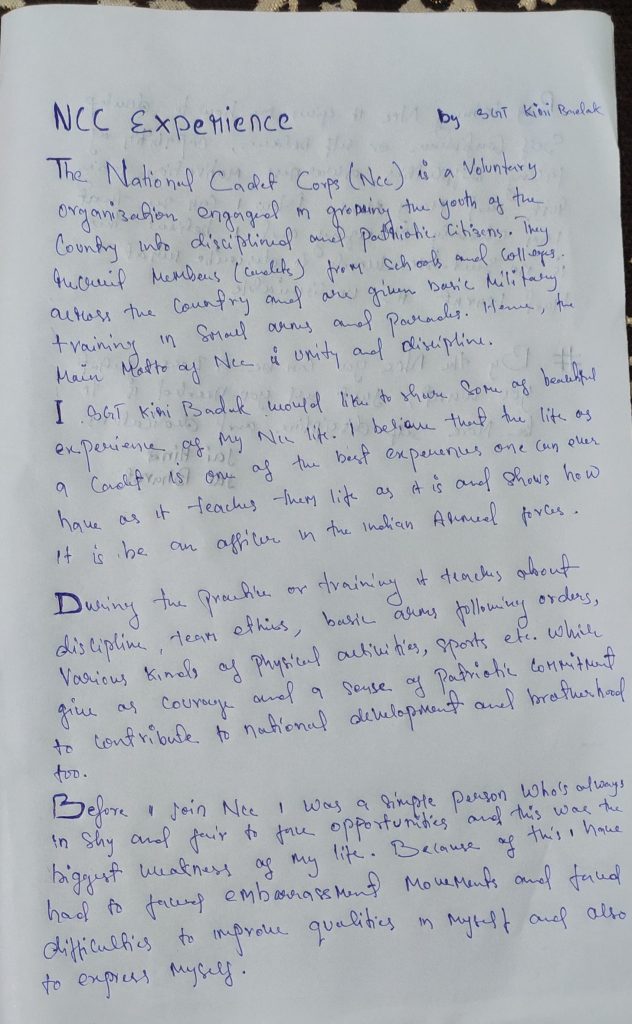 NCC Experience by SGT Kini Badak
The National Cadet Corps (Ncc) is a Voluntary
organization engaged in grooming the youth of the
Country into disciplined and patriotic Citizens. They
recruit Members (cadets) from Schools and Colleges.
across the Country and are given basic Military
training in Small arms and Parades. Hence, the
Main Motto of Ncc is unity and discipline.
I SGT Kini Badak would like to share Some of beautiful
experience of my Ncc life. I believe that the life as
a Cadet is one of the best experiences one can ever
have as it teaches them life as it is and shows how
it is be an officer in the Indian Armed forces.
During the Practice or training it teachs about
discipline, team ethics, basic arms following orders,
Various Kinds of Physical activities, sports etc. while
give as Courage and a sense of Patriotic Commitment
to Contribute to national development and brotherhood
too.
Before I join Ncc I was a Simple Person Who's always
in Shy and fair to face opportunities and this was the
biggest weakness of my life. Because of this I have
had to faced embarrassment Movements and faced
difficulties to improve qualities in Myself and also
to express Myself.